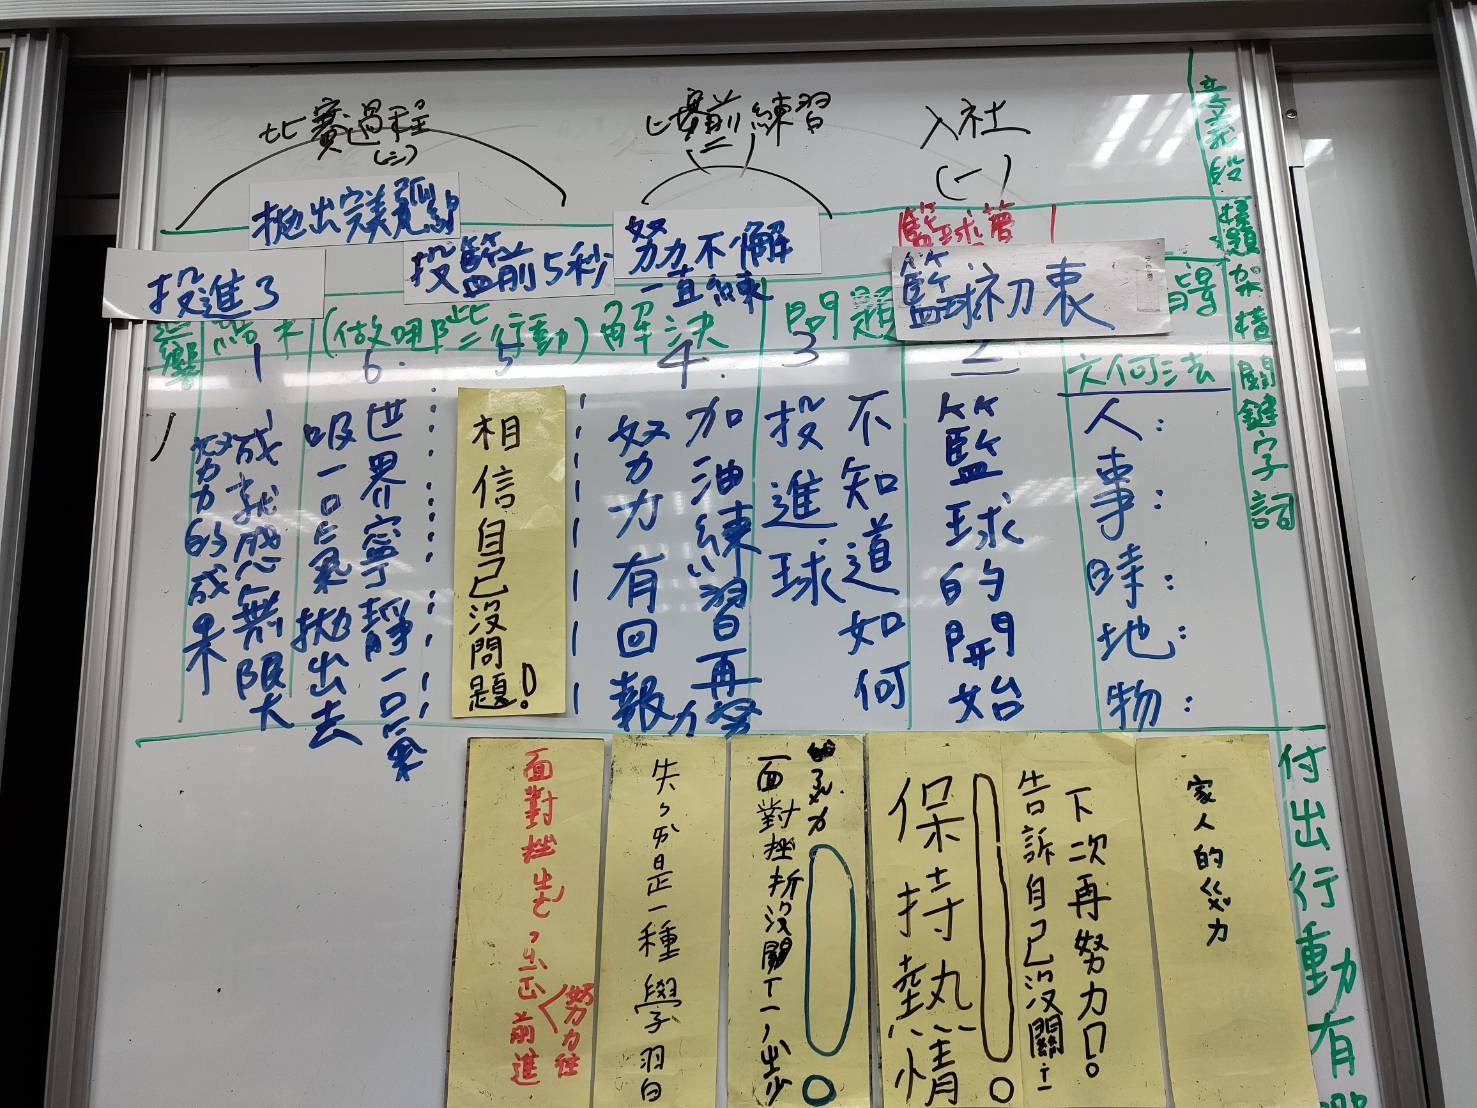 意義段
擬題架構關鍵字詞
入社
(一)
比賽前練習
(二)
比賽過程
(三)
籃球夢
籃球初衷
努力不懈
一直練
投籃前5秒
拋出完美弧
投進了
問題
解決
(做哪些行動)
結
響
六何法
人：
事：
時：
地：
物：
2
籃球的開始
3
不知道如何
投進球
4.
加油練習再努力
努力有回報
5
相信自己沒問題！
6.
世界寧靜一口氣
吸一口氣拋出去
1
成就感無限大
努力的成果
付出行動有
家人的
力
下次再努力！
告訴自己沒關
保持熱情！
面對挫折沒關
下一步
失分是一種學習
面對挫
前進
努力